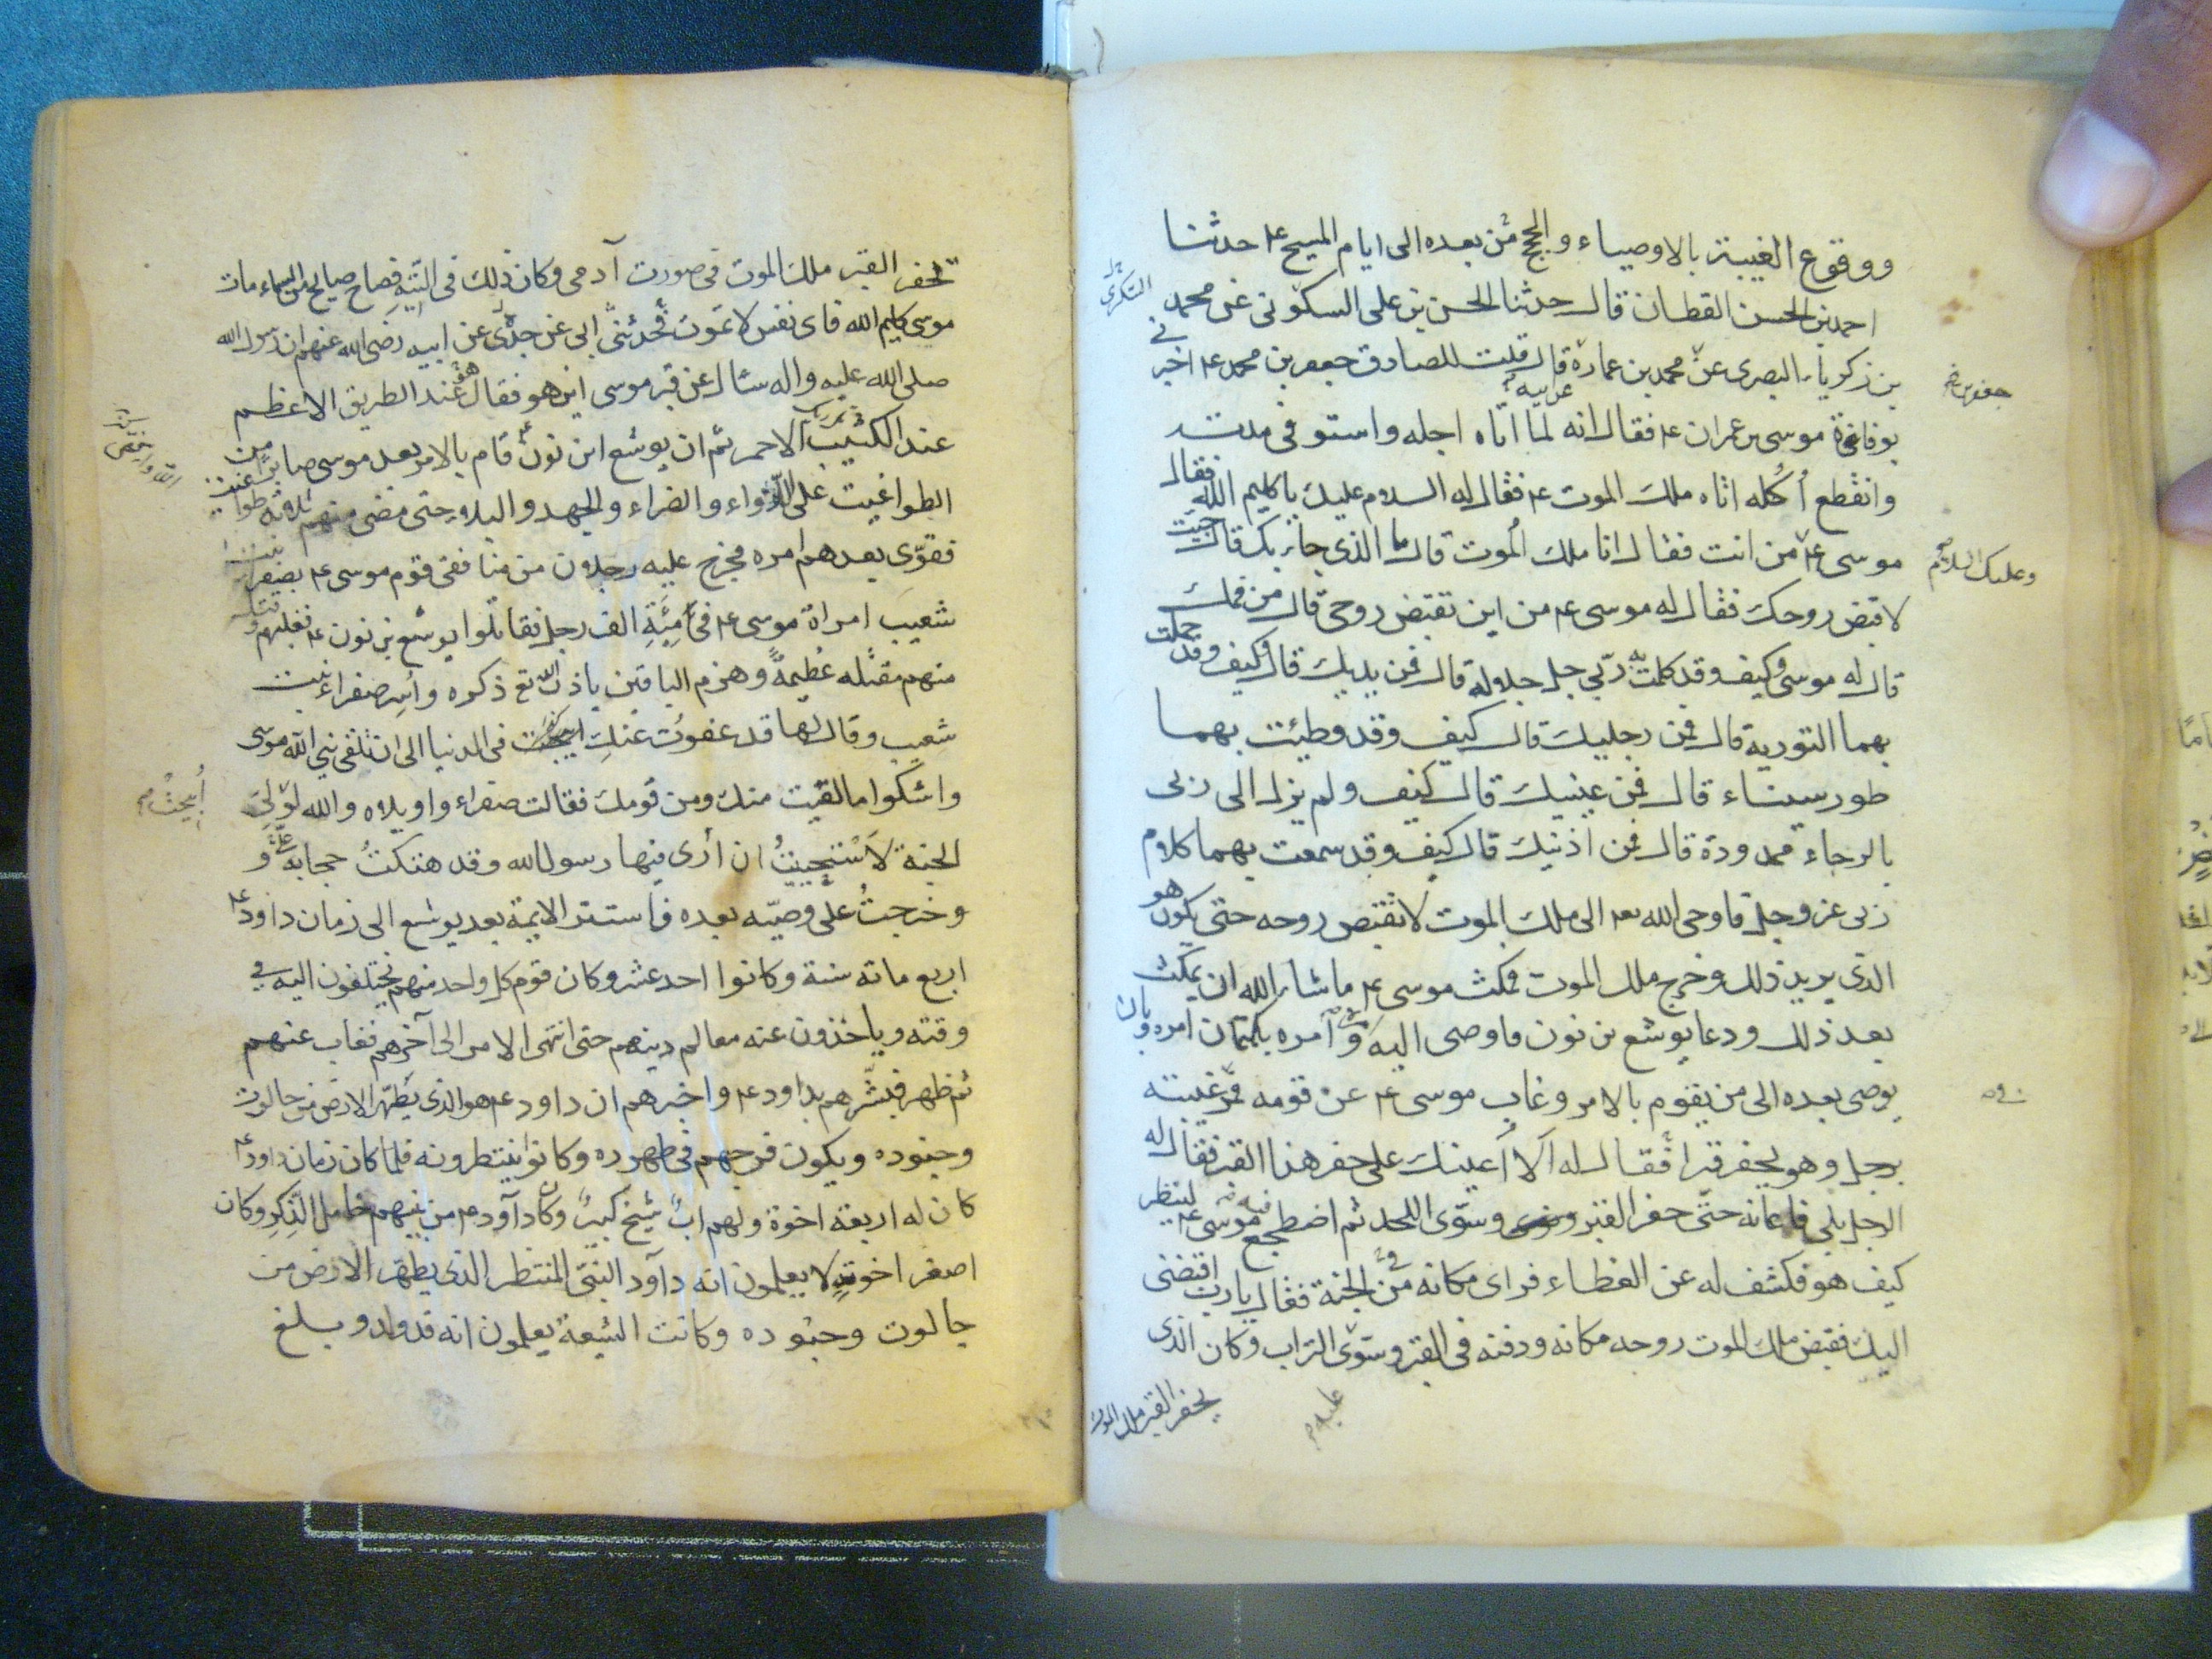 ووقوع الغيبة بالاوصياء والحجج من بعده الى ايام المسيح ع حدثنا
احمد بن الحسن القطان قال حدثنا الحسن بن على السكونى عن محمد
السكرى
بن زكرياء البصرى عن محمد بن عمارة قال قلت للصادق جعفر بن محمد ع اخبر
نى
عن ابيه
جعفر بن
بوفاة موسى بن عمران ع فقال انه لما اتاه اجله واستوفى مدته
وانقطع أُكُله اتاه ملك الموت ع فقال له السلام عليك يا كليم الله فقال
موسى ع من انت فقال انا ملك الموت قال ما الذى جاء بك قال جئت
وعليك السلام
لاقبض روحك فقال له موسى ع من اين تقبض روحى قال من فمك
قال له موسى وكيف وقد كلمت به ربى جل جلاله قال فمن يديك قال وكيف وقد حملت
بهما التورية قال فمن رجليك قال كيف وقد وطيئت بهما
طور سيناء قال فمن عينيك قال كيف ولم يزل الى ربى
بالرجاء ممدودة قال فمن اذنيك قال كيف وقد سمعت بهما كلام
ربى عز وجل فاوحى الله تعه الى ملك الموت لا تقبض روحه حتى يكون هو
الذى يريد ذلك وخرج ملك الموت فمكث موسى ع ما شاء الله ان يمكث
بعد ذلك ودعا يوشع بن نون فاوصى اليه وامره بكتمان امره وبان
يوصى بعده الى من يقوم بالامر وغاب موسى ع عن قومه فمر غيبته
فى
برجل وهو يحفر قبرا فقال له الا اعينك على حفر هذا القبر فقال له
الرجل بلى فاعانه حتى حفر القبر وسوى اللحد ثم اضطجع فيه موسى ع لينظر
كيف هو فكشف له عن الغطاء فراى مكانه من الجنة فقال يا رب اقبضنى
اليك فقبض ملك الموت روحه مكانه ودفنه فى القبر وسوى التراب وكان الذى
عليه
يحفر القبر ملك الموت
تحفر القبر ملك الموت فى صورت آدمى وكان ذلك فى التيه فصاح صايح من السماء مات
موسى كليم الله فاى نفس لا تموت فحدثنى ابى عن جدى عن ابيه رضى الله عنهم ان رسول الله
صلى الله عليه واله سئال عن قبر موسى اين هو فقال هو عند الطريق الاعظم
عند الكثيب الاحمر ثم ان يوشع ابن نون قام بالامر بعد موسى صابرا من
الطواغيت على اللاواء والضراء والجهد والبلاء حتى مضى منهم ثلاثة طواغيت
فقوى بعدهم امره فخرج عليه رجلان من منافقى قوم موسى ع بصفراء بنت
شعيب امراة موسى ع فى مِئَةِ الف رجل فقاتلوا يوشع بن نون ع فغلبهم وقتل
منهم مقتله عظيمةً وهزم الباقين باذن الله تع ذكره واسر صفراء بنت
شعيب وقال لها قد عفوت عنك فى الدنيا الى ان تلقى نبى الله موسى
أُبيحت
واشكوا ما لقيت منك ومن قومك فقالت صفراء واويلاه والله لو
الجنة لاستحييت ان أرى فيها رسول الله وقد هتكت حجابه و
وخرجت على وصيه بعده فاستتر الايمة بعد يوشع الى زمان داود ع
اربع مائة سنة وكانوا احد عشر وكان قوم كل واحد منهم يختلفون اليه فى
وقته وياخذون عنه معالم دينهم حتى انتهى الامر الى آخرهم فغاب عنهم
ثم ظهر فبشرهم بداود ع واخبرهم ان داود ع هو الذى يطهر الارض من جالوت
وجنوده ويكون فرجهم فى ظهوره وكانوا ينتظرونه فلما كان زمان داود ع
كان له اربعة اخوة ولهم ابٌ شيخ كبيرٌ وكان داود ع من بينهم خامل الذكر وكان
اصغر اخوته لا يعلمون انه داود النبى المنتظر الذى يطهر الارض من
جالوت وجنوده وكانت الشيعة يعلمون انه قد ولد وبلغ